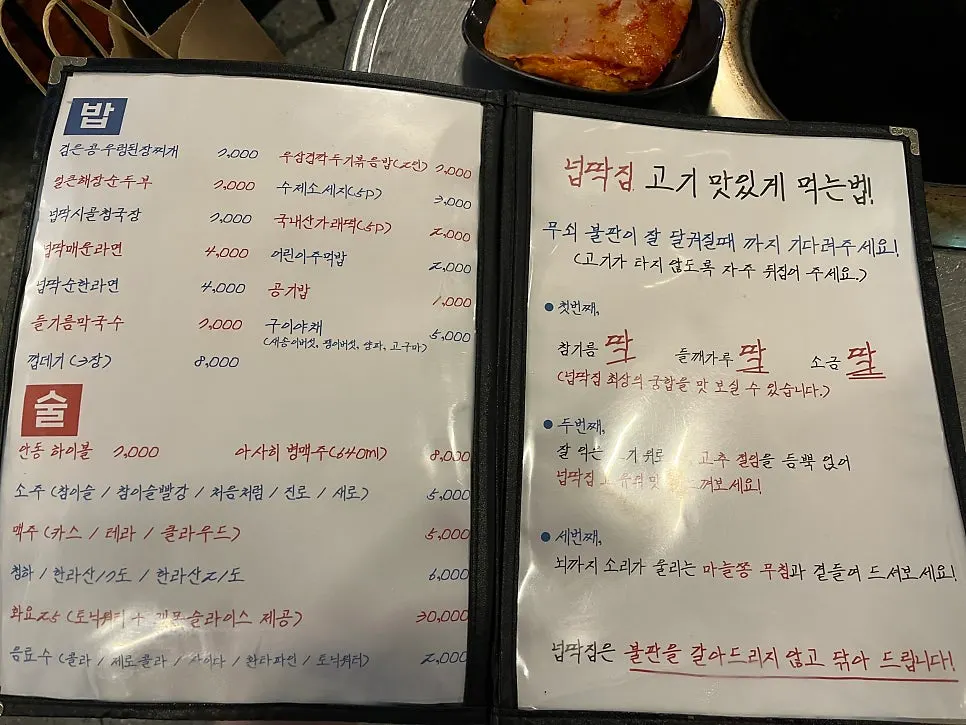 밥
검은콩 우렁된장찌개 7,000
얼큰해장순두부 7,000
넙딱시골청국장 7,000
넙딱매운라면 4,000
넙딱순한라면 4,000
들기름막국수 7,000
껍데기(3장) 8,000
우삼겹깍두기볶음밥(2인) 7,000
수제소세지(5P) 3,000
국내산가래떡(5P) 2,000
어린이주먹밥 2,000
공기밥 1,000
구이야채 5,000
(새송이버섯, 팽이버섯, 양파, 고구마)
술
안동 하이볼 7,000 아사히 병맥주(640ml) 8,000
소주 (참이슬 / 참이슬빨강 / 처음처럼 / 진로 / 새로) 5,000
맥주 (카스 / 테라 / 클라우드) 5,000
청하 / 한라산17도 / 한라산21도 6,000
화요25 (토닉워터 + 레몬슬라이스 제공) 30,000
음료수 (콜라 / 제로콜라 / 사이다 / 환타파인 / 토닉워터) 2,000
넙딱집 고기 맛있게 먹는법!
무쇠 불판이 잘 달궈질때 까지 기다려주세요!
(고기가 타지 않도록 자주 뒤집어 주세요.)
● 첫번째,
참기름 딱 들깨가루 딱 소금 딱
(넙딱집 최상의 궁합을 맛 보실 수 있습니다.)
● 두번째,
잘 익은 고기 위로 고추 절임을 듬뿍 얹어
넙딱집 고유의 맛 느껴보세요!
● 세번째,
뇌까지 소리가 울리는 마늘쫑 무침과 곁들여 드셔보세요!
넙딱집은 불판을 갈아드리지 않고 닦아 드립니다!